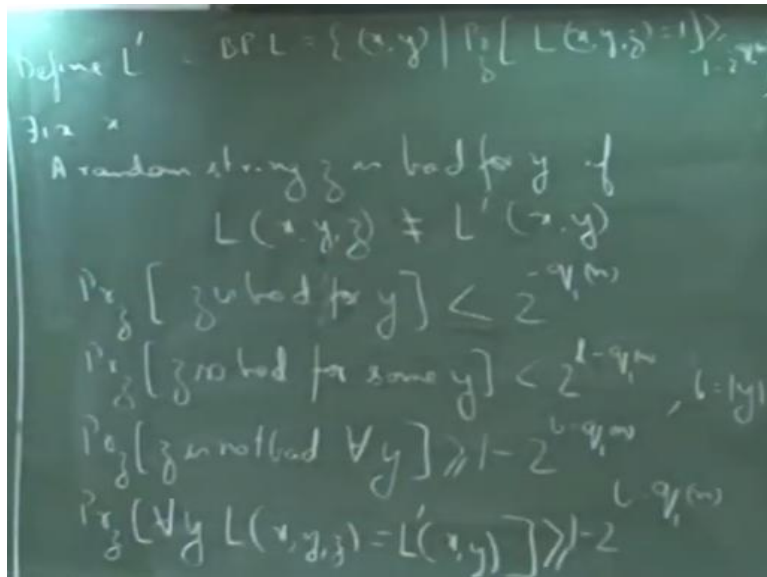 Define L' = BPL = {(x,y) | Pr_z[L(x,y,z)=1] ≥ 1-2^{-q_1(n)}
Fix x
A random string z is bad for y if
L(x,y,z) ≠ L'(x,y)
Pr_z[z is bad for y] < 2^{-q_1(n)}
Pr_z[z is bad for some y] < 2^{l-q_1(n)}, l=|y|
Pr_z[z is not bad ∀y] ≥ 1-2^{l-q_1(n)}
Pr_z[∀y L(x,y,z)=L'(x,y)] ≥ 1-2^{l-q_1(n)}